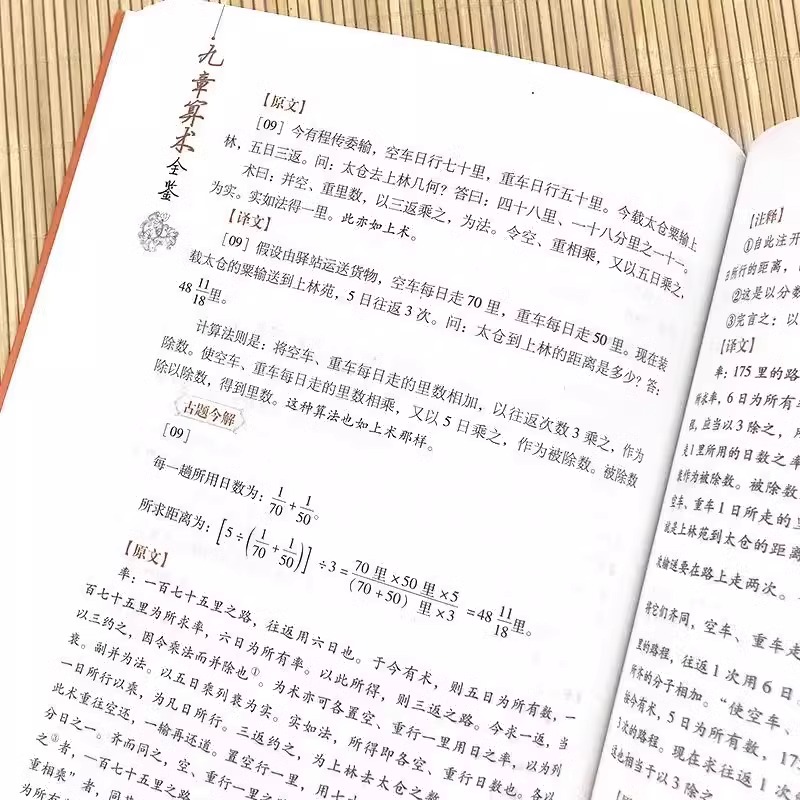 九章算术全鉴
【原文】
[09] 今有程传委输，空车日行七十里，重车日行五十里。今载太仓粟输上
林，五日三返。问：太仓去上林几何？答曰：四十八里、一十八分里之一十一。
术曰：并空、重里数，以三返乘之，为法。令空、重相乘，又以五日乘之，
为实。实如法得一里。此亦如上术。
【译文】
[09] 假设由驿站运送货物，空车每日走 70 里，重车每日走 50 里。现在装
载太仓的粟输送到上林苑，5 日往返 3 次。问：太仓到上林的距离是多少？答：
48 11/18 里。
计算法则是：将空车、重车每日走的里数相加，以往返次数 3 乘之，作为
除数。使空车、重车每日走的里数相乘，又以 5 日乘之，作为被除数。被除数
除以除数，得到里数。这种算法也如上术那样。
古题今解
[09]
每一趟所用日数为：1/70+1/50。
所求距离为：[5÷(1/70+1/50)]÷3=70 里×50 里×5/(70+50) 里×3=48 11/18 里。
【原文】
率：一百七十五里之路，往返用六日也。于今有术，则五日为所有数，一
百七十五里为所求率，六日为所有率。以此所得，则三返之路。今求一返，当
以三约之，因令乘法而并除也①。为术亦可各置空、重行一里用日之率，以为列
衰。副并为法。以五日乘列衰为实。实如法，所得即各空、重行日数也。各以
一日所行以乘，为凡日所行。三返约之，为上林去太仓之数。
此术重往空还，一输再还道。置空行一里，用七十
分日之一。齐而同之，空、重行一里之
之③者，一百七十五里之路
重相乘”者，同
为所有
【注释】
①自此注开
日所行的距离，
②这是以分数
③完言之：以
【译文】
率：175 里的路
所求率，6 日为所有
程，应当以 3 除之，
走1里所用的日数之率
作为被除数。被除数
空车、重车 1 日所走的里
就是上林苑到太仓的距离
次输送要在路上走两次。
将它们齐同，空车、重车走
里的路程，往返 1 次用 6 日。
所齐的分子相加。“使空车、
按今有术，5 日为所有数，175
3次的路程。现在求往返 1 次
这也相当于以 3 除之